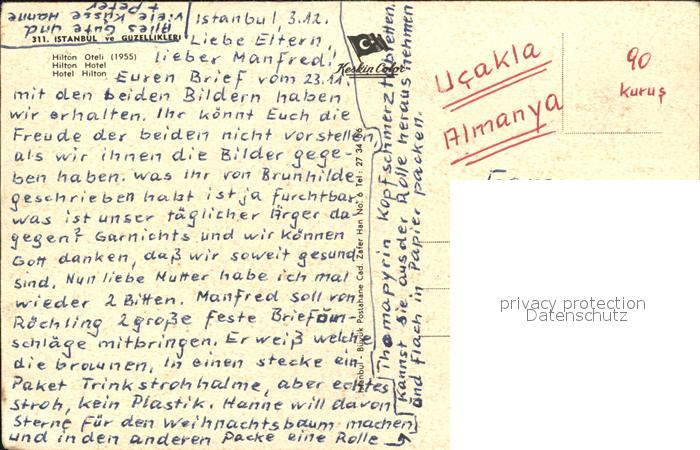 Istanbul, 3.12.
Liebe Eltern,
lieber Manfred!
Euren Brief vom 23.11.
mit den beiden Bildern haben
wir erhalten. Ihr könnt Euch die
Freude der beiden nicht vorstellen,
als wir ihnen die Bilder gege-
ben haben. Was ihr von Brunhilde
geschrieben habt ist ja furchtbar
was ist unser täglicher Ärger da-
gegen? Garnichts und wir können
Gott danken, daß wir soweit gesund
sind. Nun liebe Mutter habe ich mal
wieder 2 Bitten. Manfred soll von
Röchling 2 große feste Briefum-
schläge mitbringen. Er weiß welche
die braunen, in einen stecke ein
Paket Trinkstrohhalme, aber echtes
Stroh, kein Plastik. Hanne will davon
Sterne für den Weihnachtsbaum machen
und in den anderen Packe eine Rolle
Thomapyrin Kopfschmerztabletten.
kannst sie aus der Rolle heraus nehmen
und flach in Papier packen.
Alles Gute und
viele Küsse Hanne
+ Peter
311. ISTANBUL ve GÜZELLİKLERİ
Hilton Oteli (1955)
Hilton Hotel
Hotel Hilton
Keskin Color
İstanbul - Büyük Postahane Cad. Zafer Han No: 6 Tel: 27 34 06
Uçakla
Almanya
90
kuruş
privacy protection
Datenschutz